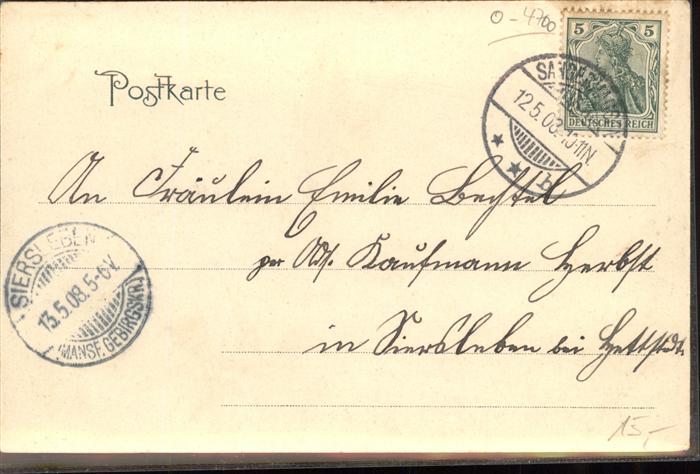 0-4700
5 5
DEUTSCHES REICH
Postkarte
12.5.08.10-11N
b
An Fräulein Emilie Bechtel
per Ads. Kaufmann Herbst
in Siersleben bei Hettstedt.
SIERSLEBEN
13.5.08.5-6V.
(MANSF. GEBIRGSKR.)
15,-